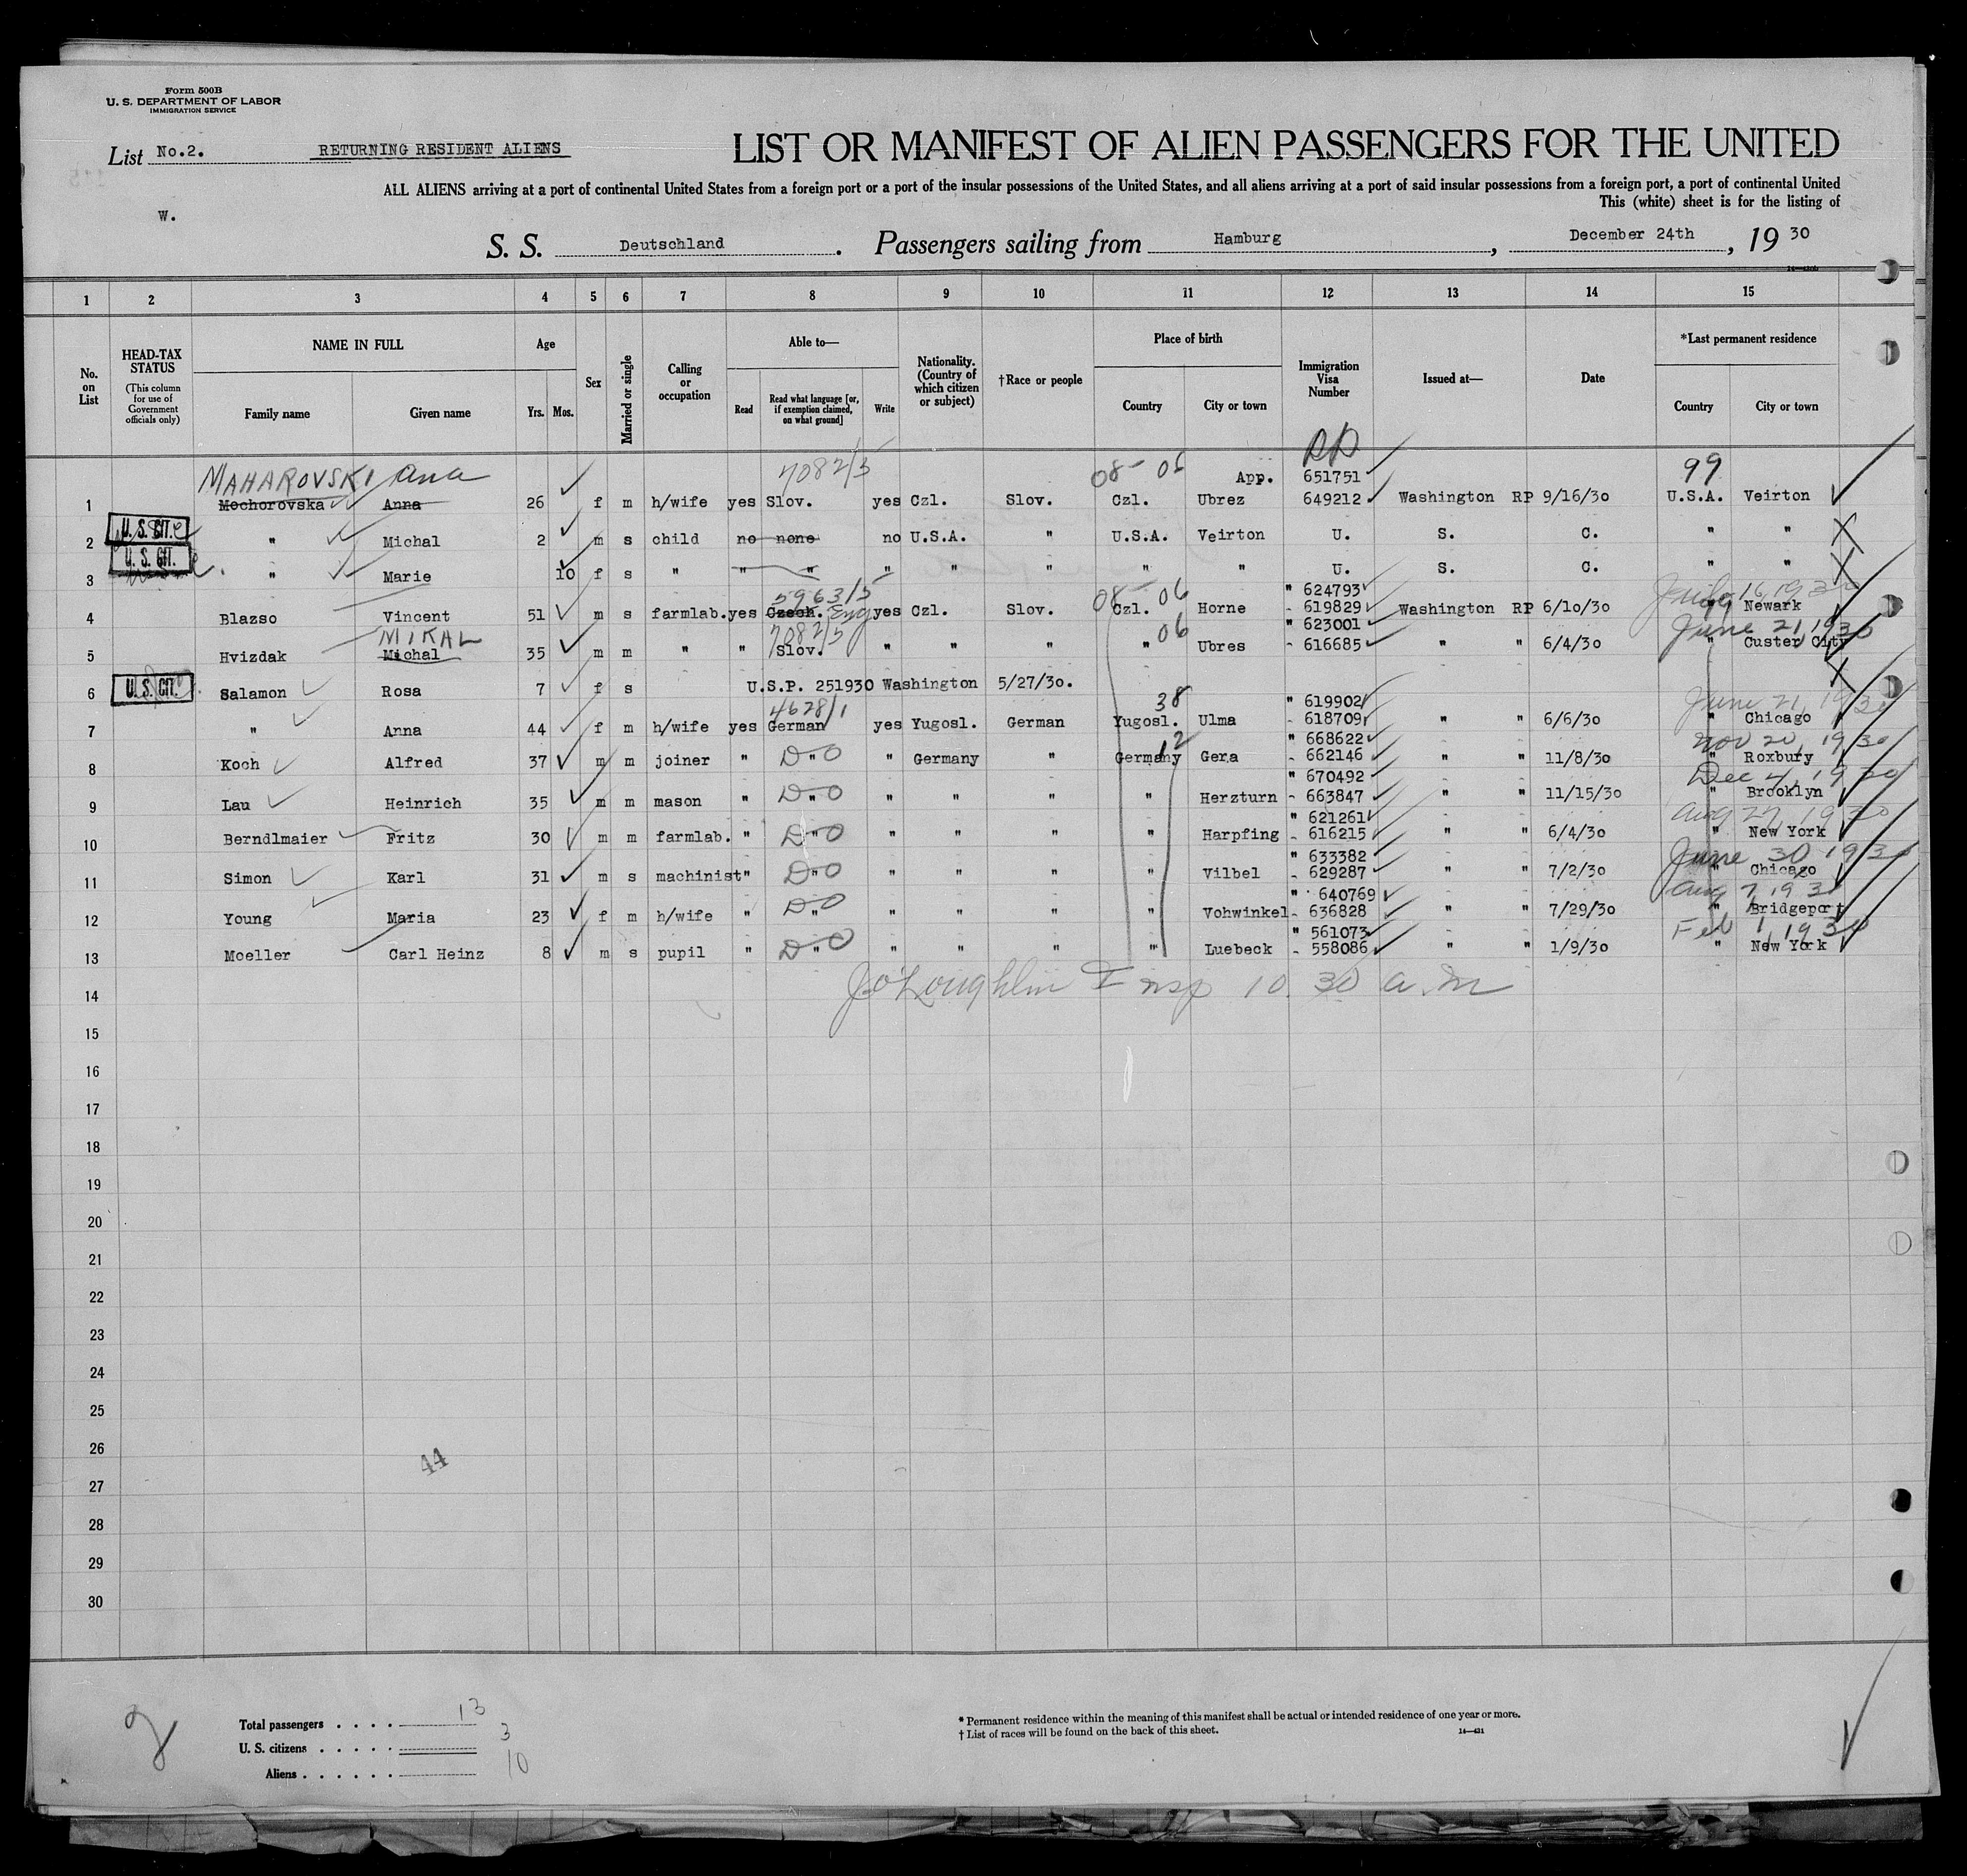 Form 500B
U. S. DEPARTMENT OF LABOR
IMMIGRATION SERVICE
List No.2. RETURNING RESIDENT ALIENS
LIST OR MANIFEST OF ALIEN PASSENGERS FOR THE UNITED
ALL ALIENS arriving at a port of continental United States from a foreign port or a port of the insular possessions of the United States, and all aliens arriving at a port of said insular possessions from a foreign port, a port of continental United
This (white) sheet is for the listing of
W.
S. S. Deutschland. Passengers sailing from Hamburg, December 24th, 19 30
1 2 3 4 5 6 7 8 9 10 11 12 13 14 15
No. on List
HEAD-TAX STATUS (This column for use of Government officials only)
NAME IN FULL
Family name Given name
Age
Yrs. Mos.
Sex
Married or single
Calling or occupation
Able to—
Read Read what language [or, if exemption claimed, on what ground] Write
Nationality. (Country of which citizen or subject)
†Race or people
Place of birth
Country City or town
Immigration Visa Number
Issued at—
Date
*Last permanent residence
Country City or town
MAHAROVSKI Ana 7082/5 08- 06 App. 651751 99
1 Mochorovska Anna 26 f m h/wife yes Slov. yes Czl. Slov. Czl. Ubrez 649212 Washington RP 9/16/30 U.S.A. Veirton
U. S. CIT.
2 " Michal 2 m s child no none no U.S.A. " U.S.A. Veirton U. S. C. " "
U. S. CIT.
3 " Marie 10 f s " " " " " " " " U. S. C. " "
5963/5 08- 06 " 624793 16, 1930
4 Blazso Vincent 51 m s farmlab. yes Czech. Eng yes Czl. Slov. Czl. Horne - 619829 Washington RP 6/10/30 " Newark
MIKAL 7082/5 06 " 623001 June 21, 1930
5 Hvizdak Michal 35 m m " " Slov. " " " " Ubres - 616685 " " 6/4/30 " Custer City
6 U. S. CIT. Salamon Rosa 7 f s U.S.P. 251930 Washington 5/27/30.
4628/1 38 " 619902 June 21, 1930
7 " Anna 44 f m h/wife yes German yes Yugosl. German Yugosl. Ulma - 618709 " " 6/6/30 " Chicago
12 " 668622 Nov 20, 1930
8 Koch Alfred 37 m m joiner " D " O " Germany " Germany Gera - 662146 " " 11/8/30 " Roxbury
" 670492 Dec 4, 1930
9 Lau Heinrich 35 m m mason " D " O " " " " Herzturn - 663847 " " 11/15/30 " Brooklyn
" 621261 Aug 27, 1930
10 Berndlmaier Fritz 30 m m farmlab. " D " O " " " " Harpfing - 616215 " " 6/4/30 " New York
" 633382 June 30 1930
11 Simon Karl 31 m s machinist " D " O " " " " Vilbel - 629287 " " 7/2/30 " Chicago
" 640769 Aug 7, 193
12 Young Maria 23 f m h/wife " D " O " " " " Vohwinkel - 636828 " " 7/29/30 " Bridgeport
" 561073 Feb 1, 1930
13 Moeller Carl Heinz 8 m s pupil " D " O " " " " Luebeck - 558086 " " 1/9/30 " New York
14 J O'Loughlin Insp 10.30 a.m
15
16
17
18
19
20
21
22
23
24
25
26
44
27
28
29
30
Total passengers . . . . 13
U. S. citizens . . . . . 3
Aliens . . . . . . 10
* Permanent residence within the meaning of this manifest shall be actual or intended residence of one year or more.
† List of races will be found on the back of this sheet. 14—421